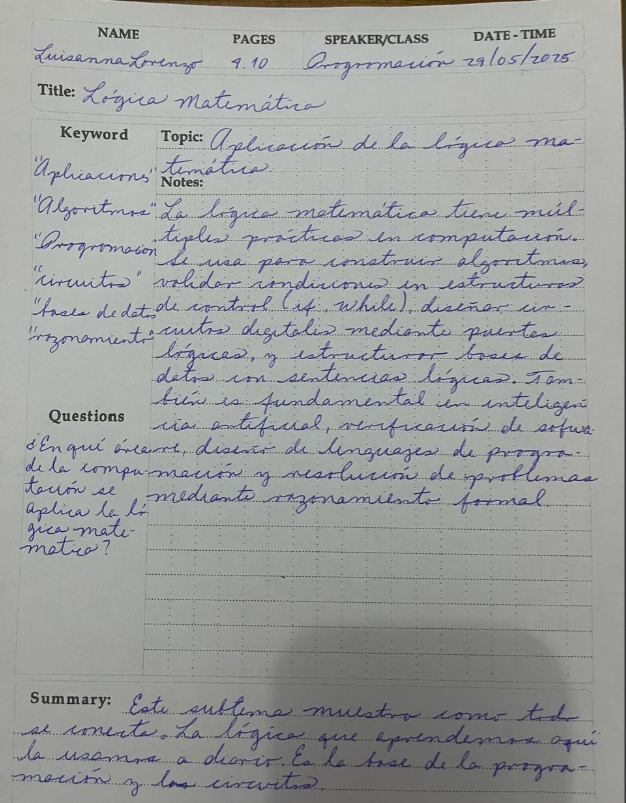 NAME PAGES SPEAKER/CLASS DATE - TIME
Luisanna Lorenzo 9.10 Programación 29/05/2025
Title: Lógica Matemática
Keyword
"Aplicaciones"
"Algoritmos"
"Programacion
"circuitos"
"bases de datos
"razonamiento"
Topic: Aplicación de la lógica ma-
temática.
Notes:
La lógica matemática tiene múl-
tiples prácticas en computación.
Se usa para construir algoritmos,
validar condiciones en estructuras
de control (if, while), diseñar cir-
cuitos digitales mediante puertas
lógicas, y estructurar bases de
datos con sentencias lógicas. Tam-
bién es fundamental en inteligen
cia artificial, verificación de sofwa
re, diseño de lenguages de progra-
mación y resolución de problemas
mediante razonamiento formal.
Questions
¿En qué área
de la compu
tación se
aplica la ló
gica mate-
matica?
Summary: Este subtema muestra como todo
se conecta. La lógica que aprendemos aquí
la usamos a diario. Es la base de la progra-
mación y los circuitos.